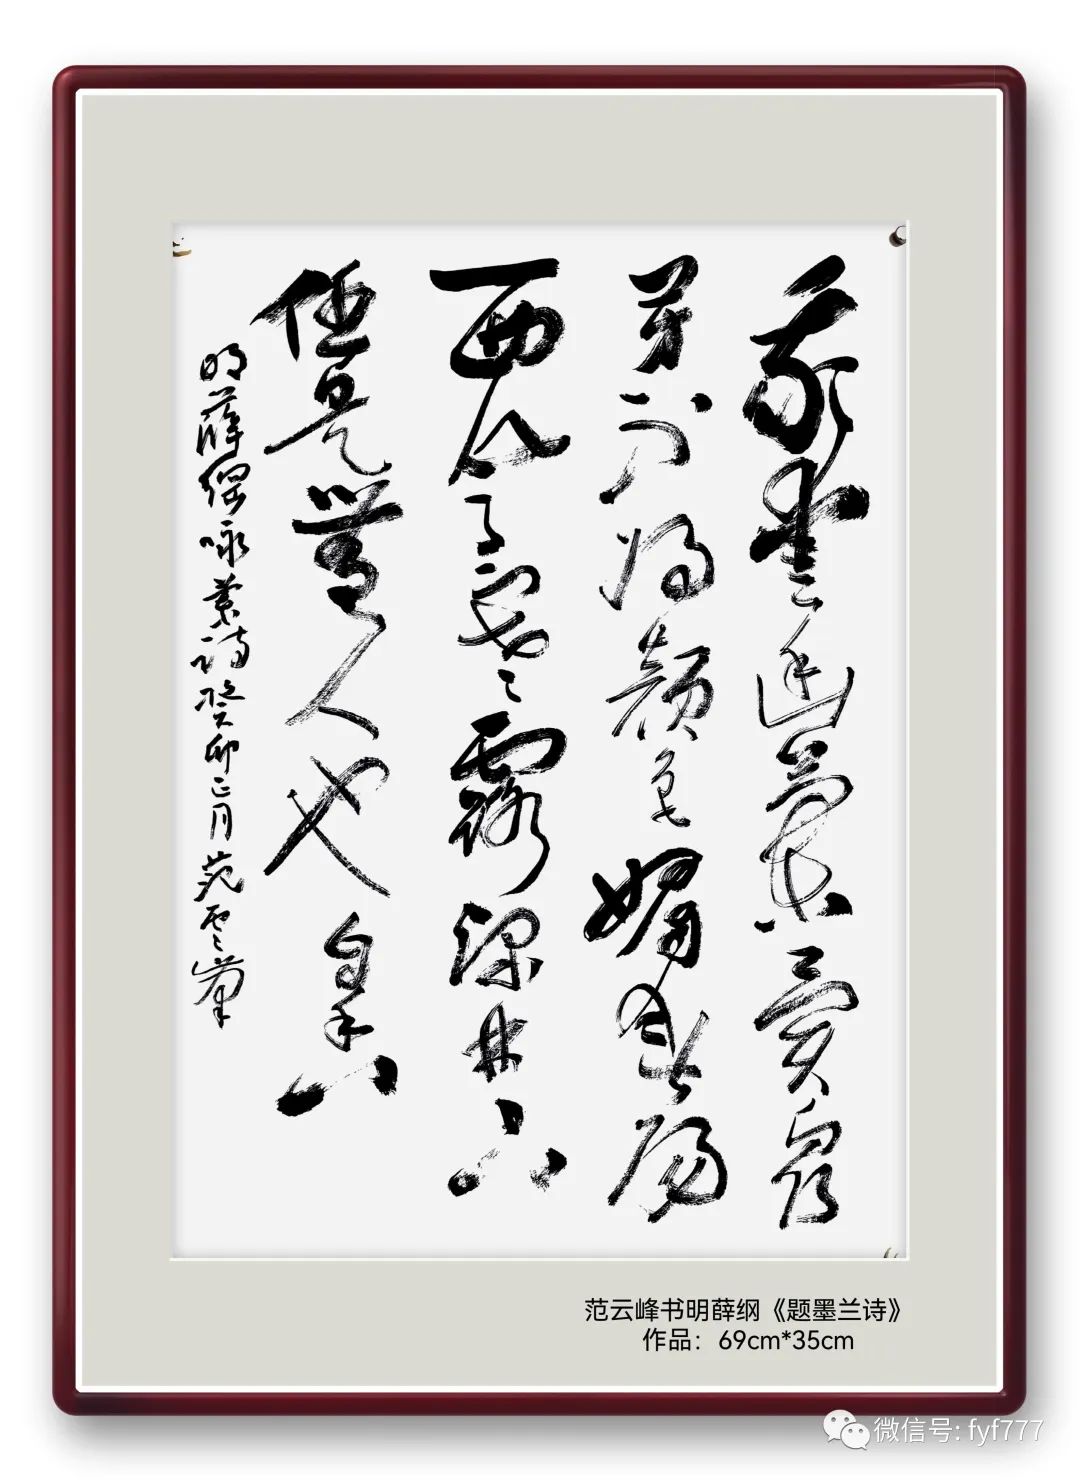 我愛幽蘭異眾
芳不將顏色媚春陽
西風寒露深林下
任是無人也自香
明薛綱咏蘭詩癸卯正月范雲峰
范云峰书明薛纲《题墨兰诗》
作品：69cm*35cm
微信号: fyf777